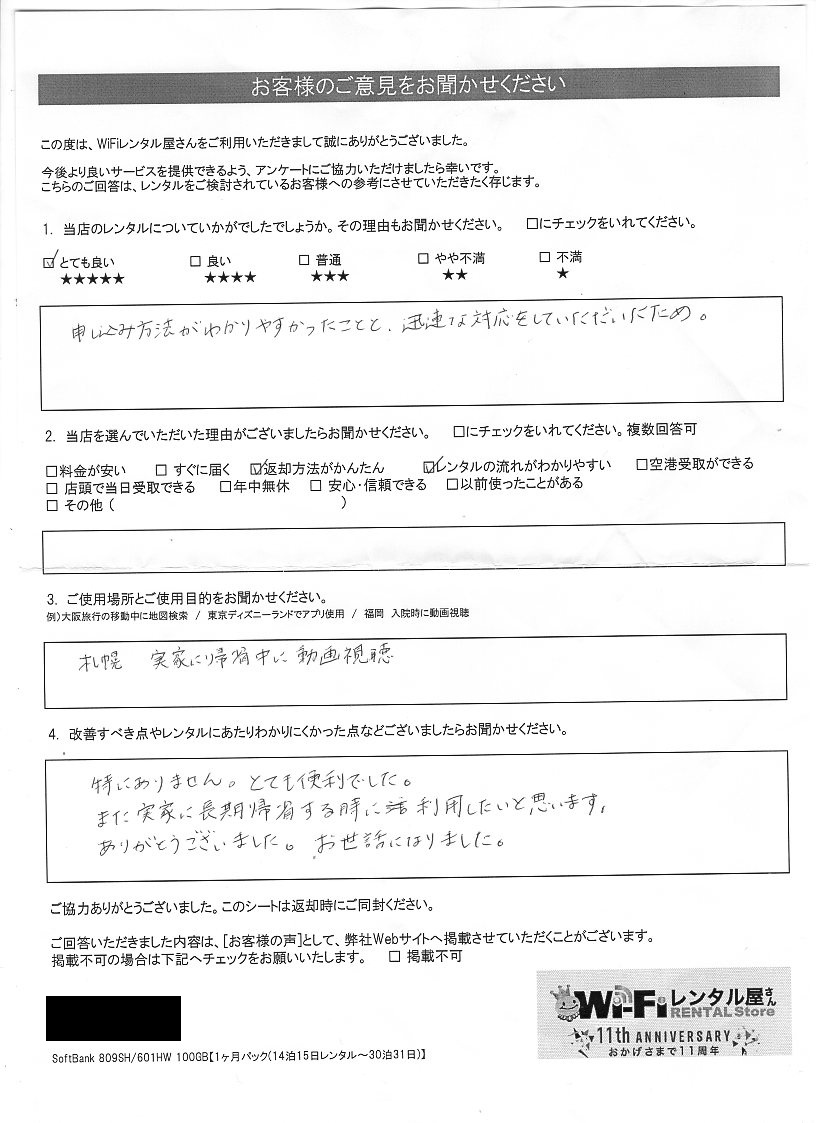 お客様のご意見をお聞かせください
この度は、WiFiレンタル屋さんをご利用いただきまして誠にありがとうございました。
今後より良いサービスを提供できるよう、アンケートにご協力いただけましたら幸いです。
こちらのご回答は、レンタルをご検討されているお客様への参考にさせていただきたく存じます。
1. 当店のレンタルについていかがでしたでしょうか。その理由もお聞かせください。 □にチェックをいれてください。
☑とても良い □ 良い □ 普通 □ やや不満 □ 不満
★★★★★ ★★★★ ★★★ ★★ ★
申し込み方法がわかりやすかったことと、迅速な対応をしていただいたため。
2. 当店を選んでいただいた理由がございましたらお聞かせください。 □にチェックをいれてください。複数回答可
□料金が安い □ すぐに届く ☑返却方法がかんたん ☑レンタルの流れがわかりやすい □空港受取ができる
□ 店頭で当日受取できる □年中無休 □ 安心・信頼できる □以前使ったことがある
□ その他 ( )
3. ご使用場所とご使用目的をお聞かせください。
例)大阪旅行の移動中に地図検索 / 東京ディズニーランドでアプリ使用 / 福岡 入院時に動画視聴
札幌 実家に帰省中に動画視聴
4. 改善すべき点やレンタルにあたりわかりにくかった点などございましたらお聞かせください。
特にありません。とても便利でした。
また実家に長期帰省する時に 利用したいと思います。
ありがとうございました。お世話になりました。
ご協力ありがとうございました。このシートは返却時にご同封ください。
ご回答いただきました内容は、[お客様の声]として、弊社Webサイトへ掲載させていただくことがございます。
掲載不可の場合は下記へチェックをお願いいたします。 □ 掲載不可
Wi-Fiレンタル屋さん
RENTAL Store
11th ANNIVERSARY
おかげさまで11周年
SoftBank 809SH/601HW 100GB【1ヶ月パック(14泊15日レンタル～30泊31日)】